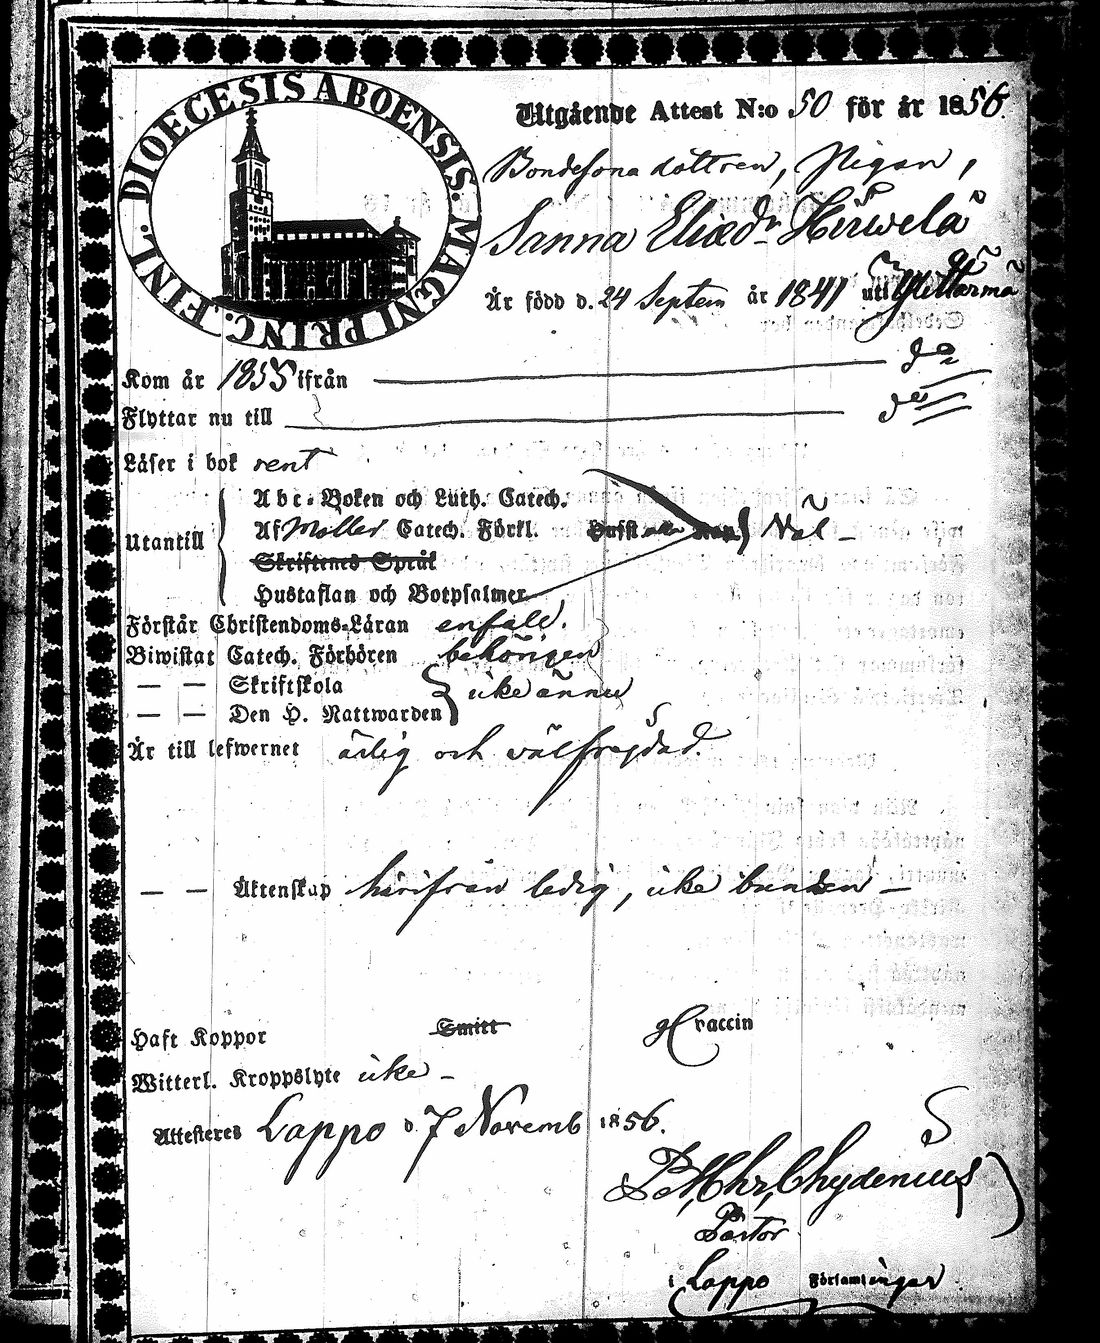 DIOECESIS ABOENSIS. MAGNI PRINC. FINL.
Utgående Attest N:o 50 för år 1856.
Bondesona dottren, Pigan,
Sanna Eliædr Hirvelä
Är född d. 24 Septem år 1841 uti Ylittärmä
Kom år 1855 ifrån do
Flyttar nu till do
Läser i bok rent
Utantill
Abc-Boken och Luth. Catech.
Af Möllers Catech. Förkl. Väl
Skriftenes Språk
Hustaflan och Botpsalmer
Förstår Christendoms-Läran enfald.
Biwistat Catech. Förhören behörigen
— — Skriftskola
— — Den H. Nattwarden
icke ännu
Är till lefwernet ärlig och välfrägdad.
— — Äktenskap härifrån ledig, icke bunden —
Haft Koppor Smitt Vaccin
Witterl. Kroppslyte icke —
Attesteres Lappo d. 7 Novemb 1856.
Chr. Chydenius
Pastor
i Lappo Församlingar